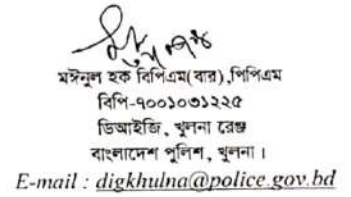 মঈনুল হক বিপিএম(বার),পিপিএম
বিপি-৭০০১০৩১২২৫
ডিআইজি, খুলনা রেঞ্জ
বাংলাদেশ পুলিশ, খুলনা।
E-mail : digkhulna@police.gov.bd